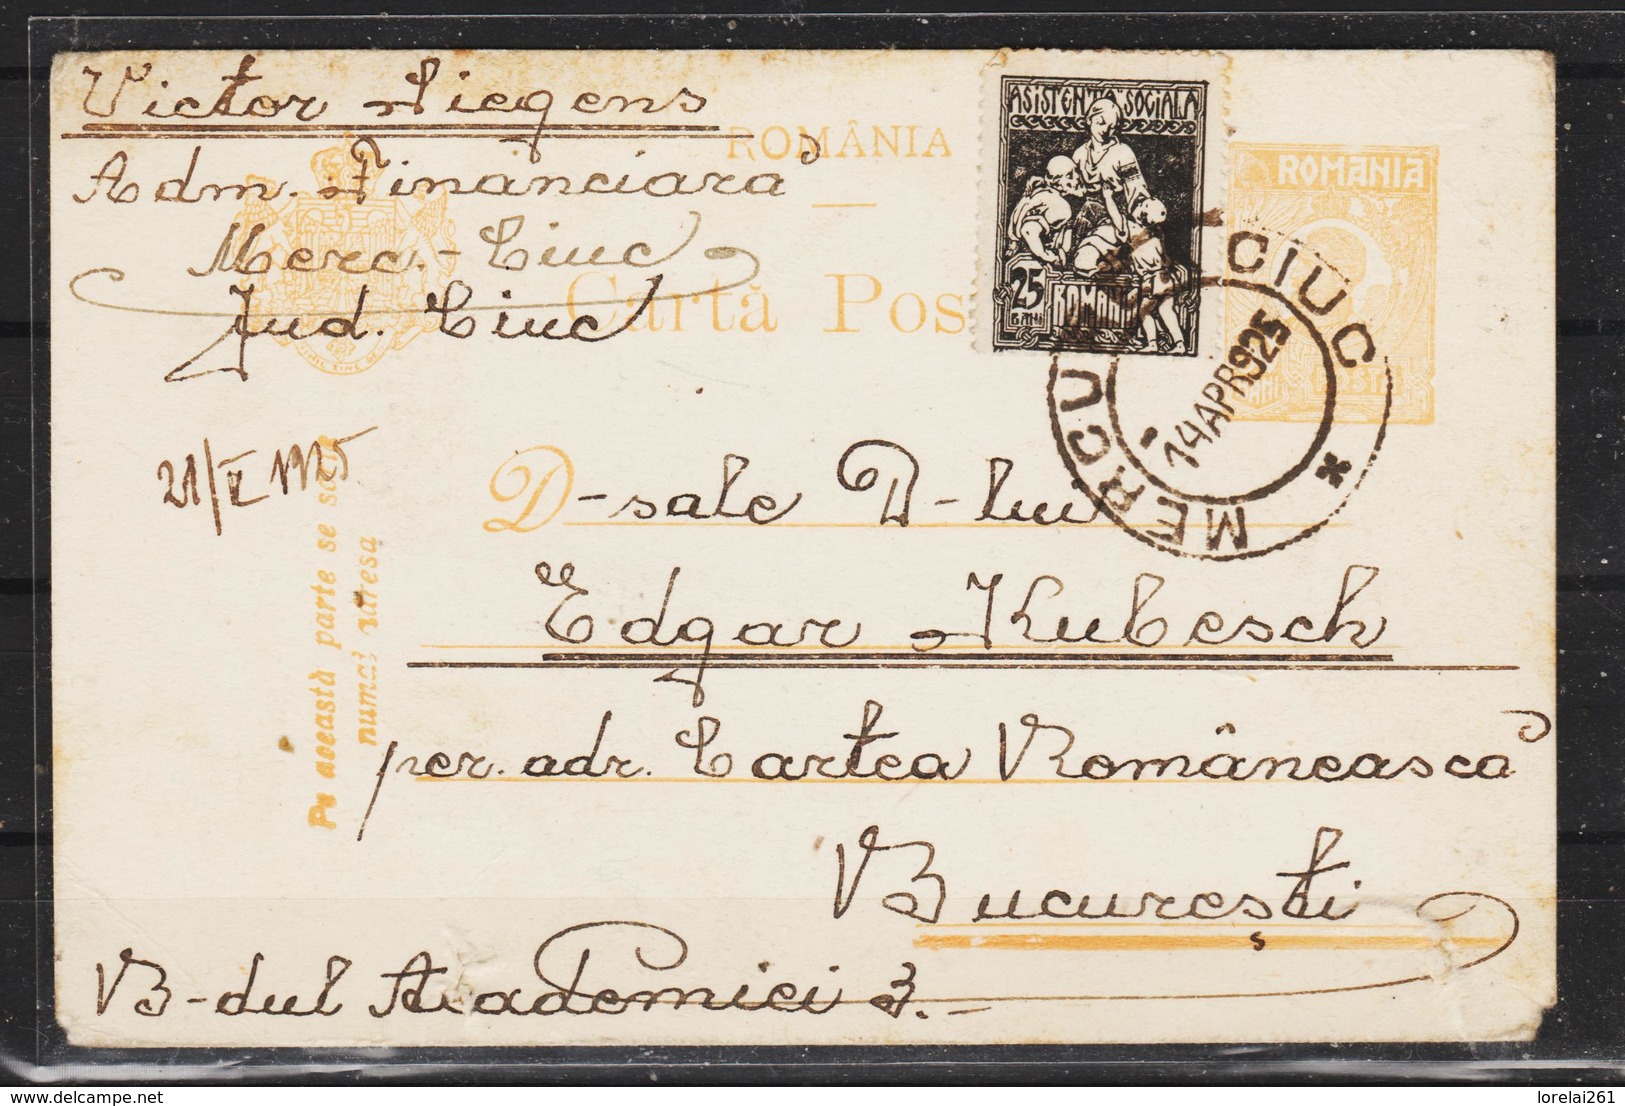 Victor Siegens
Adm. Financiară
Merc.-Ciuc
Jud. Ciuc
ROMÂNIA
Cartă Pos
ASISTENTA SOCIALA
25
BANI
ROMANIA
ROMANIA
BANI POSTA
MERCU CIUC
14 APR 925
21/IV 1925
Pe această parte se scrie
numai adresa
D-sale D-lui
Edgar Kubesch
per. adr. Cartea Românească
București
B-dul Academiei 3.-
delcampe.net
lorelai261